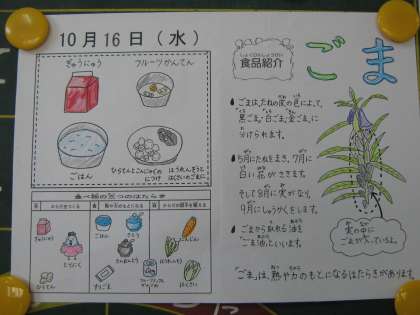 10月16日（水）
ぎゅうにゅう
フルーツかんてん
ごはん
食べ物の三つのはたらき
ぎゅうにゅう
ごはん
さとう
にんじん
とりにく
ほうれんそう
はくさい
すりごま
しょくひんしょうかい
食品紹介
ごま
●ごまはたねの皮の色によって、
黒ごま、白ごま、金ごま、に
分けられます。
●5月にたねをまき、7月に
白い花がさきます。
そして8月に実がなり、
9月にしゅうかくをします。
●ごまから取れる油を
"ごま油"といいます。
実の中に
ごまが入っているよ。
"ごま"は、熱や力のもとになるはたらきがあります。